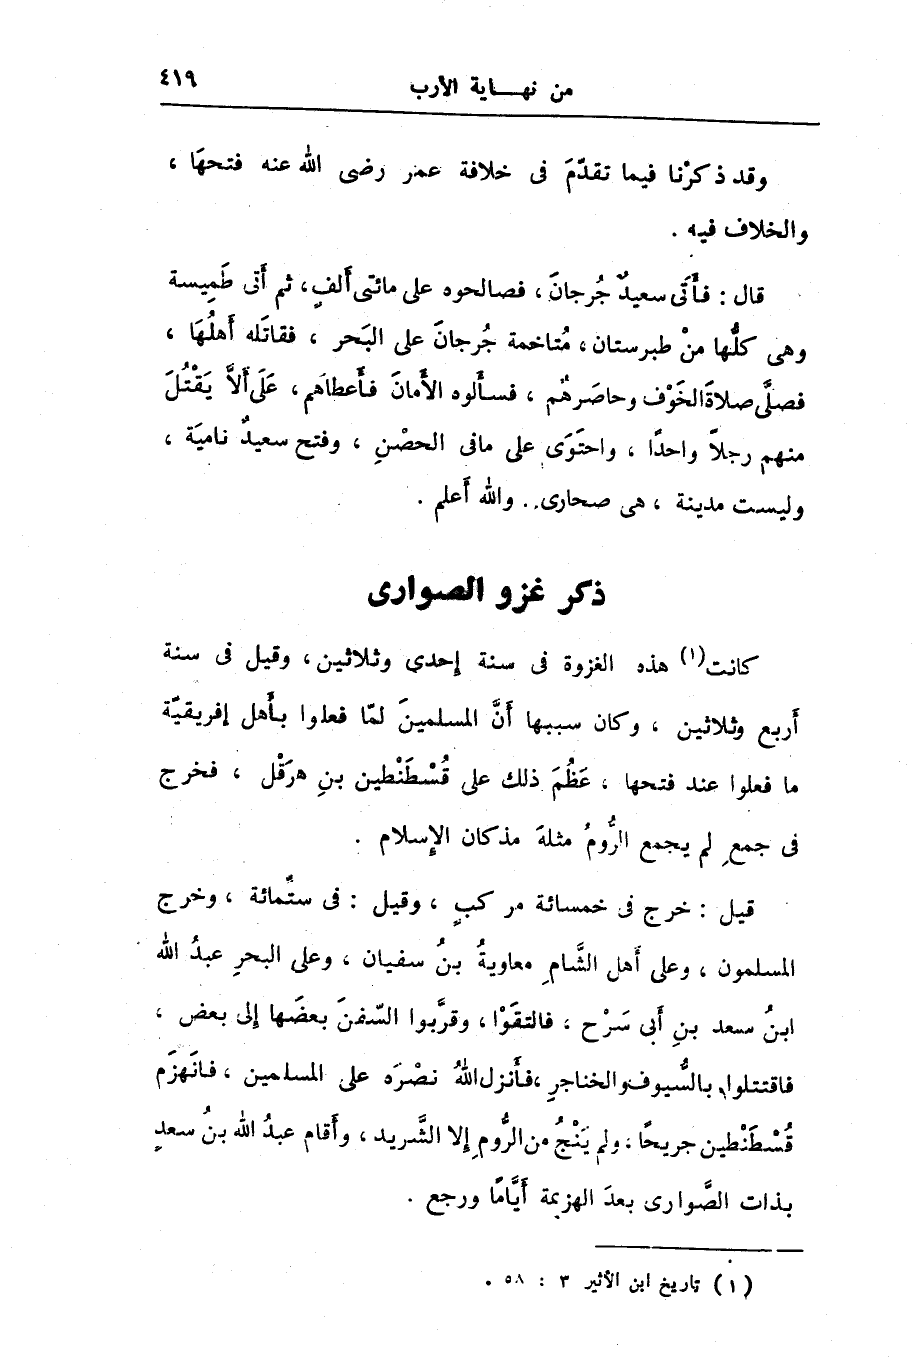 ٤١٩
من نهاية الأرب
وقد ذكرْنا فيما تقدّمَ فى خلافة عمر رضى الله عنه فتحهَا ،
والخلاف فيه .
قال : فأَتى سعيدٌ جُرجانَ ، فصالحوه على مائتى أَلفٍ ، ثم أَتى طَمِيسة
وهى كلُّها منْ طبرستان ، مُتاخمة جُرجانَ على البَحر ، فقاتَله أَهلُهَا ،
فصلَّى صلاةَ الخَوْف وحاصَرهُم ، فسأَلوه الأَمانَ فأَعطاهَم ، عَلَى أَلاَّ يَقْتُلَ
منهم رجلاً واحدًا ، واحتَوَى على مافى الحصْنِ ، وفتح سعيدٌ ناميَة ،
وليست مدينة ، هى صحارى.. والله أَعلم .
ذكر غزو الصوارى
كانت(١) هذه الغزوة فى سنة إحدى وثلاثين ، وقيل فى سنة
أَربع وثلاثين ، وكان سببها أَنَّ المسلمينَ لمّا فعلوا بأَهل إفريقيّة
ما فعلوا عند فتحها ، عَظُمَ ذلك على قُسْطَنْطين بنِ هرَقْل ، فخرج
فى جمعٍ لم يجمع الرُّومُ مثلهَ مذكان الإسلام .
قيل : خرج فى خمسائة مركبٍ ، وقيل : فى ستّمائة ، وخرج
المسلمون ، وعلى أَهل الشَّامِ معاويةُ بنُ سفيان ، وعلى البحرِ عبدُ الله
ابنُ سعد بنِ أَبى سَرْح ، فالتقَوْا ، وقرَّبوا السّفنَ بعضَها إلى بعض ،
فاقتتلوا بالسُّيوف والخناجرِ ،فأَنزل اللهُ نصْرَه على المسلمين ، فانَهزَم
قُسْطَنْطين جريحًا ، ولم يَنْجُ من الرُّومِ إلا الشَّريد ، وأَقام عبدُ الله بنُ سعدٍ
بذات الصَّوارى بعدَ الهزيمة أَيَّامًا ورجع .
(١) تاريخ ابن الأثير ٣ : ٥٨ .